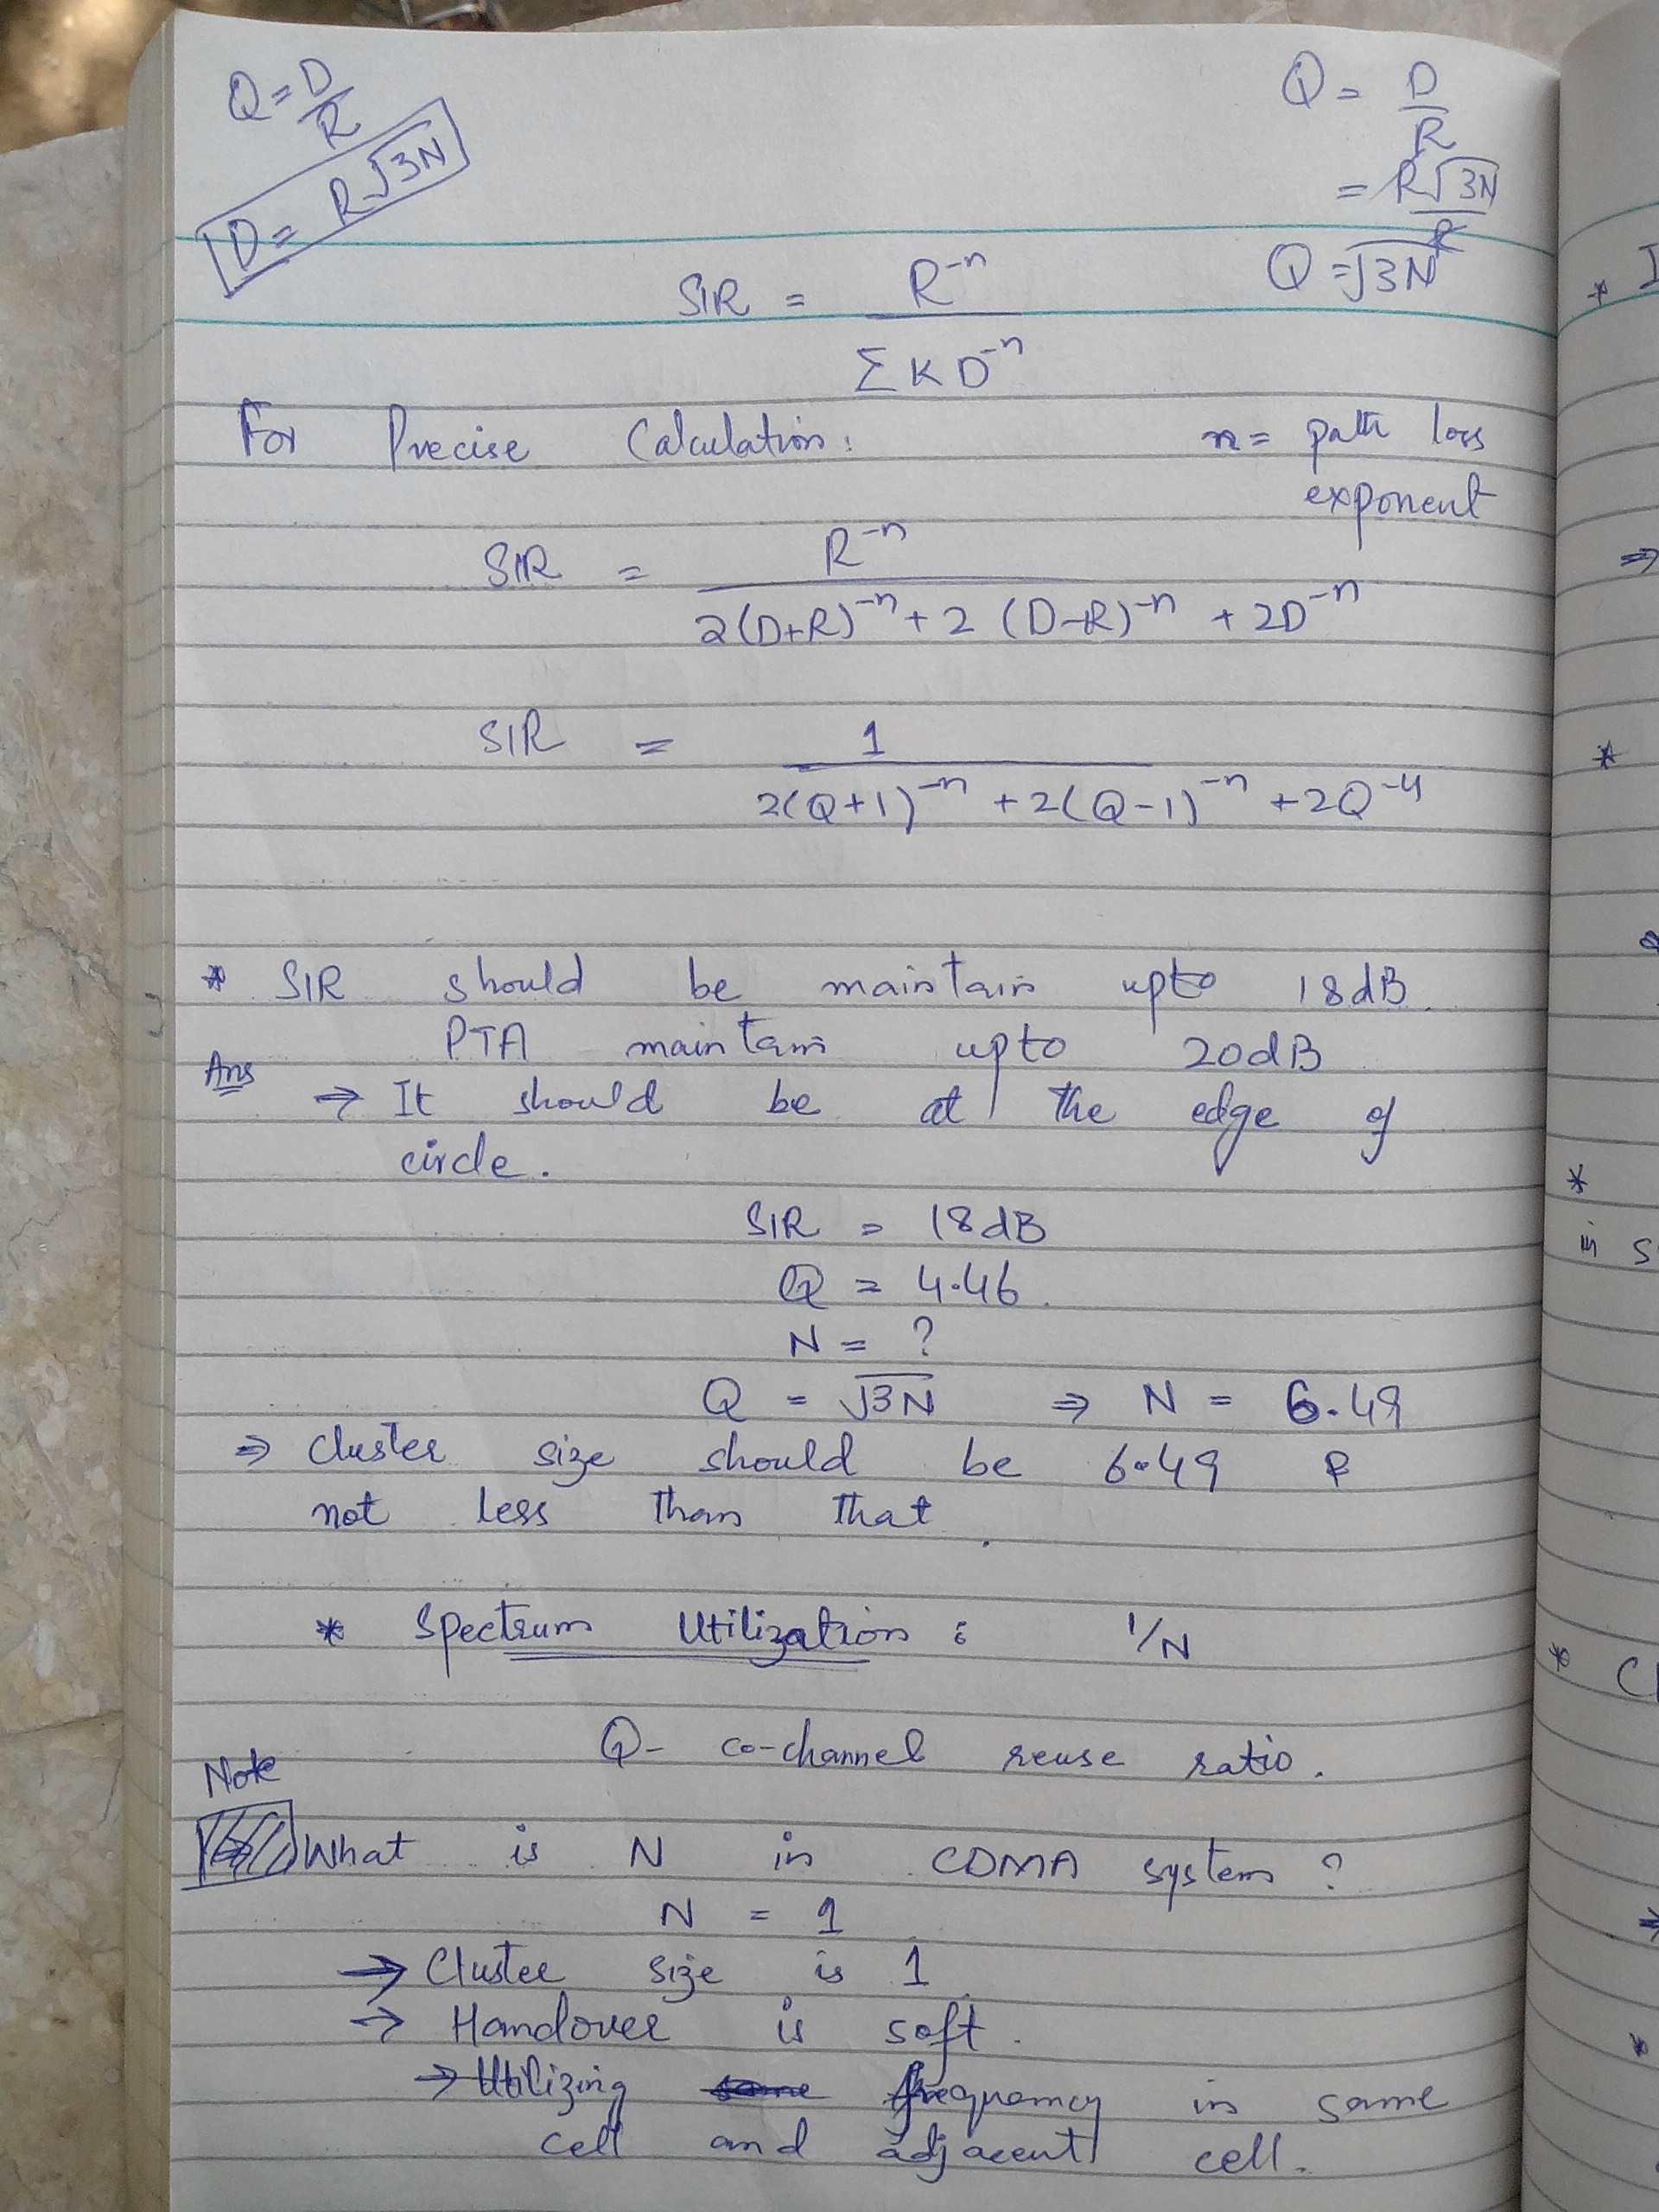 Q = D/R
D = R√3N
Q = D/R
= R√3N/R
Q = √3N
SIR = R^-n / ΣKD^-n
For Precise Calculation:
n = path loss
exponent
SIR = R^-n / 2(D+R)^-n + 2(D-R)^-n + 2D^-n
SIR = 1 / 2(Q+1)^-n + 2(Q-1)^-n + 2Q^-4
* SIR should be maintain upto 18dB.
PTA maintain upto 20dB
Ans ⇒ It should be at the edge of
circle.
SIR = 18dB
Q = 4.46.
N = ?
Q = √3N ⇒ N = 6.49
⇒ Cluster size should be 6.49 &
not less than that.
* Spectrum Utilization : 1/N
Q - co-channel reuse ratio.
Note
What is N in CDMA system ?
N = 1
→ Cluster size is 1.
→ Handover is soft.
→ Utilizing same frequency in same
cell and adjacent cell.
* I
⇒
*
*
in s
*
⇒
*